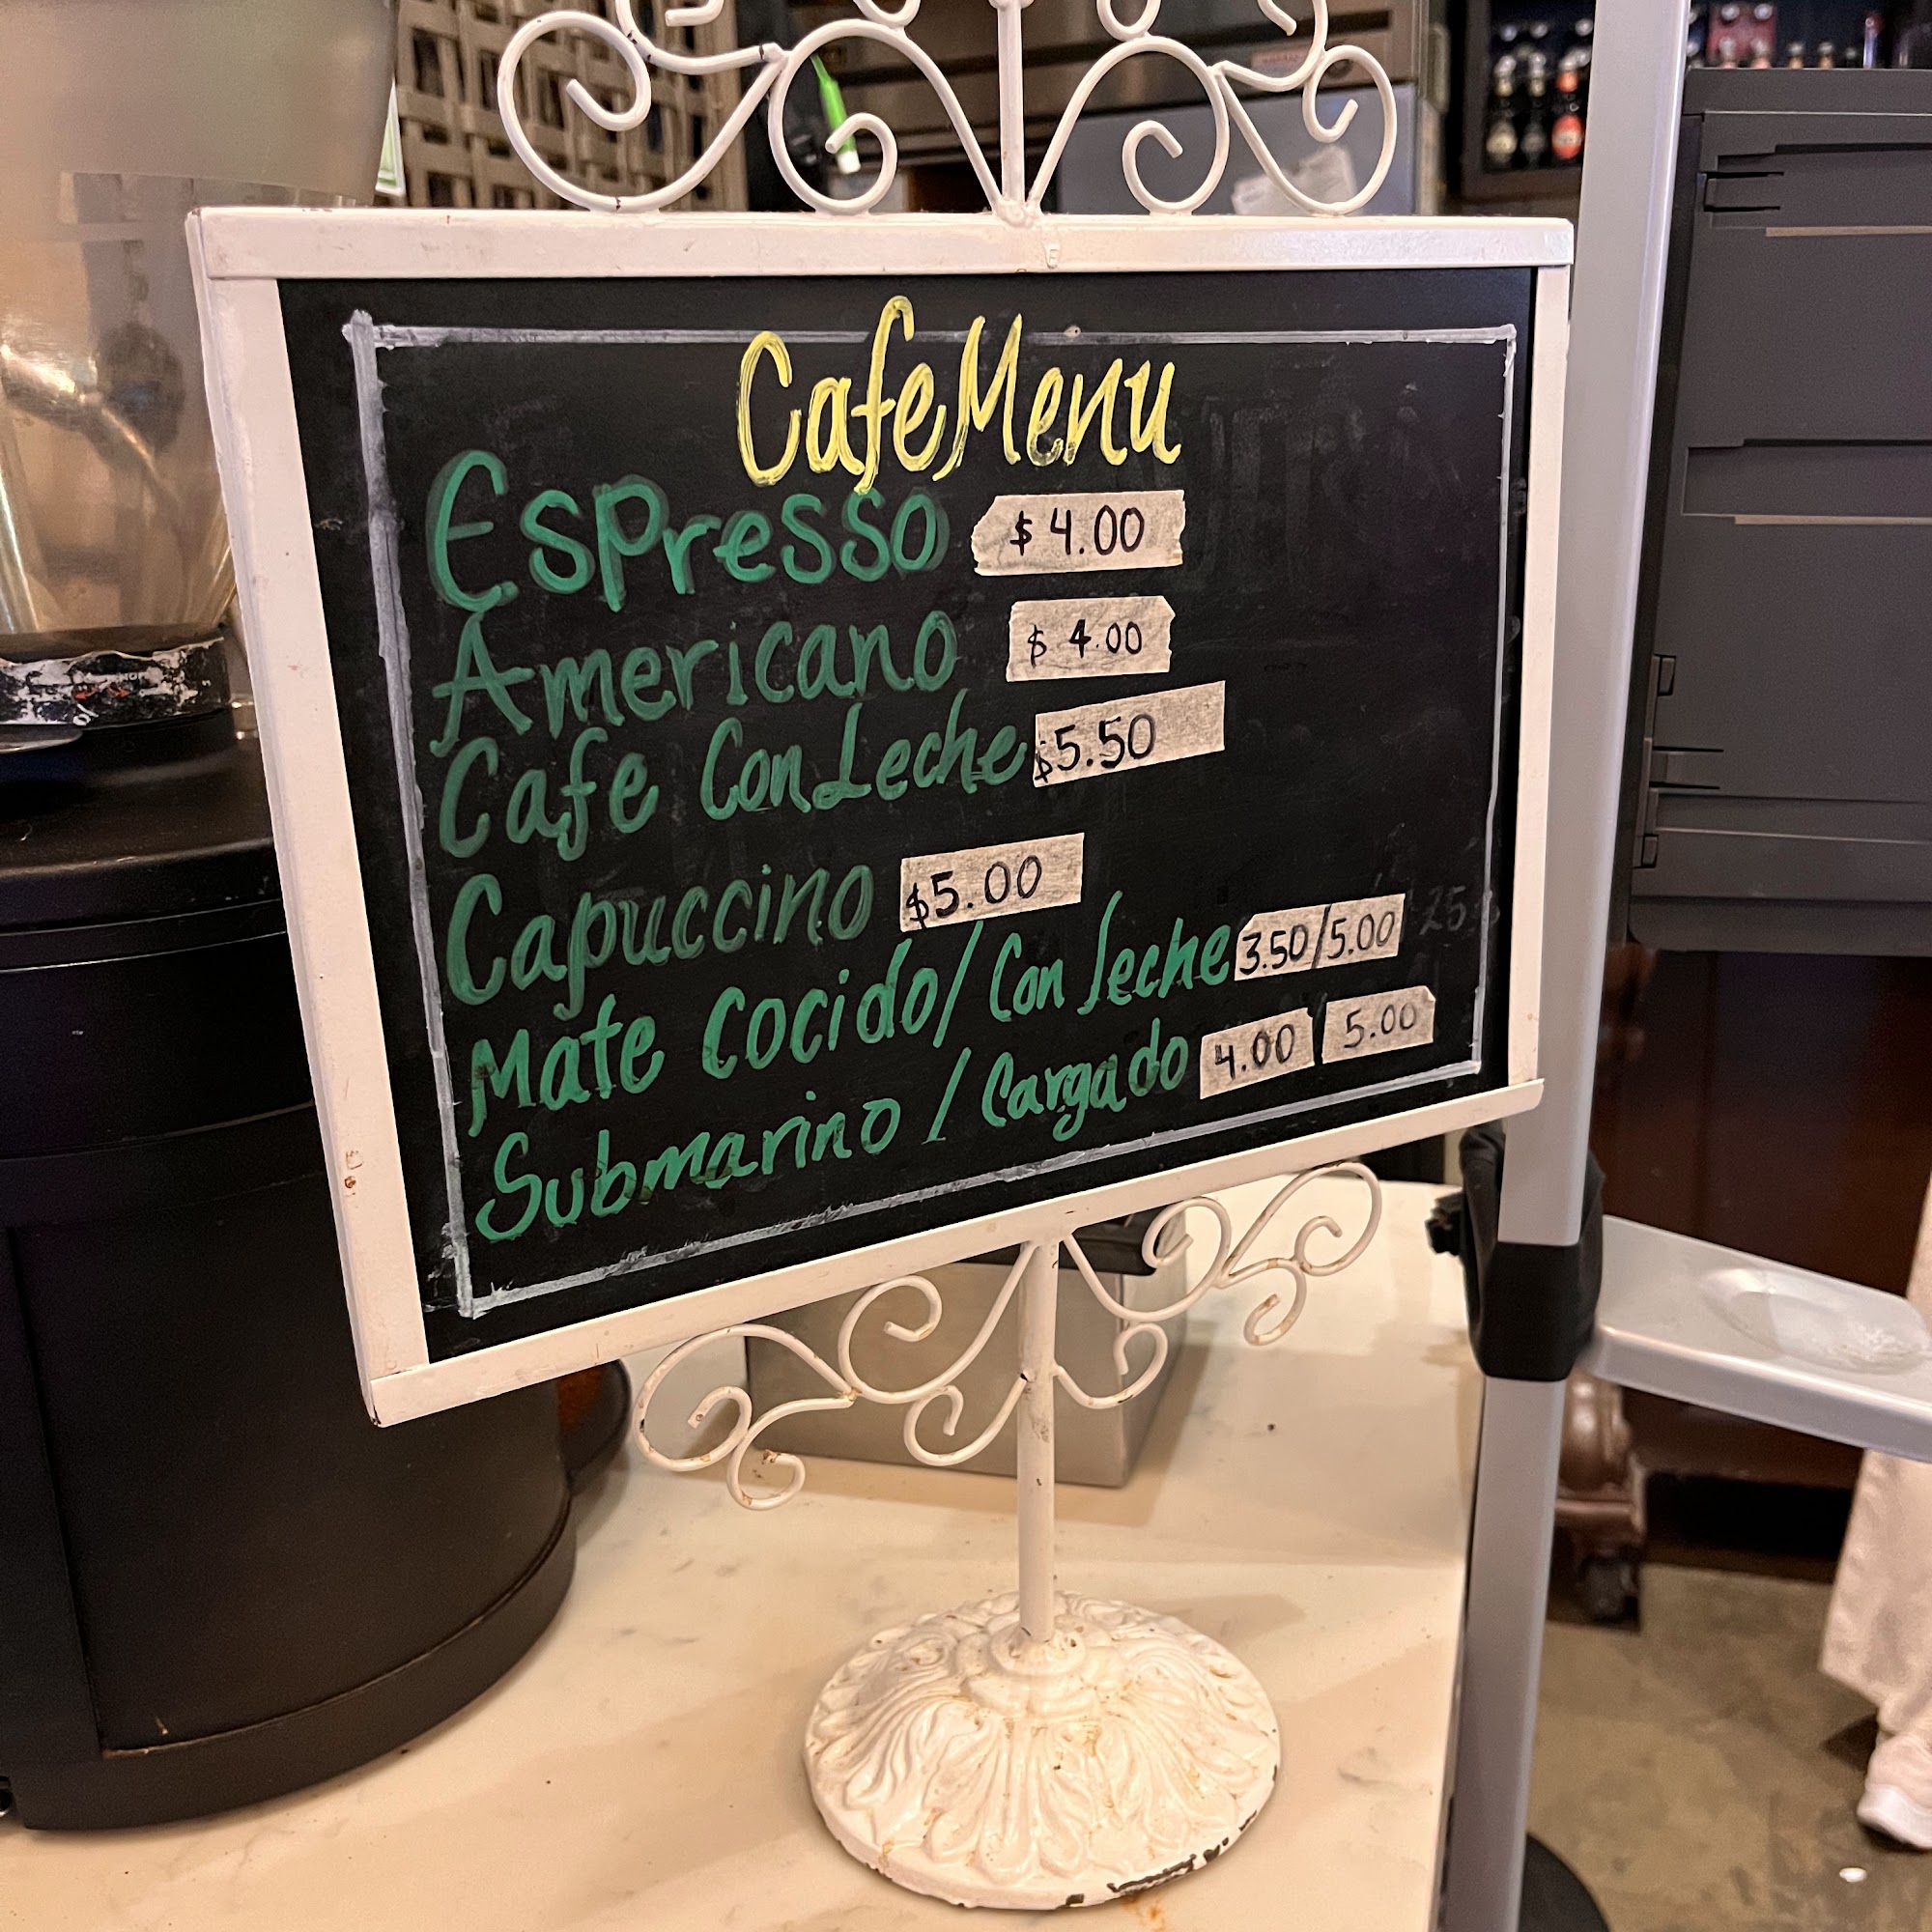 Cafe Menu
Espresso $ 4.00
Americano $ 4.00
Cafe Con Leche $5.50
Capuccino $5.00
Mate Cocido/Con leche 3.50/5.00
Submarino / Cargado 4.00 5.00